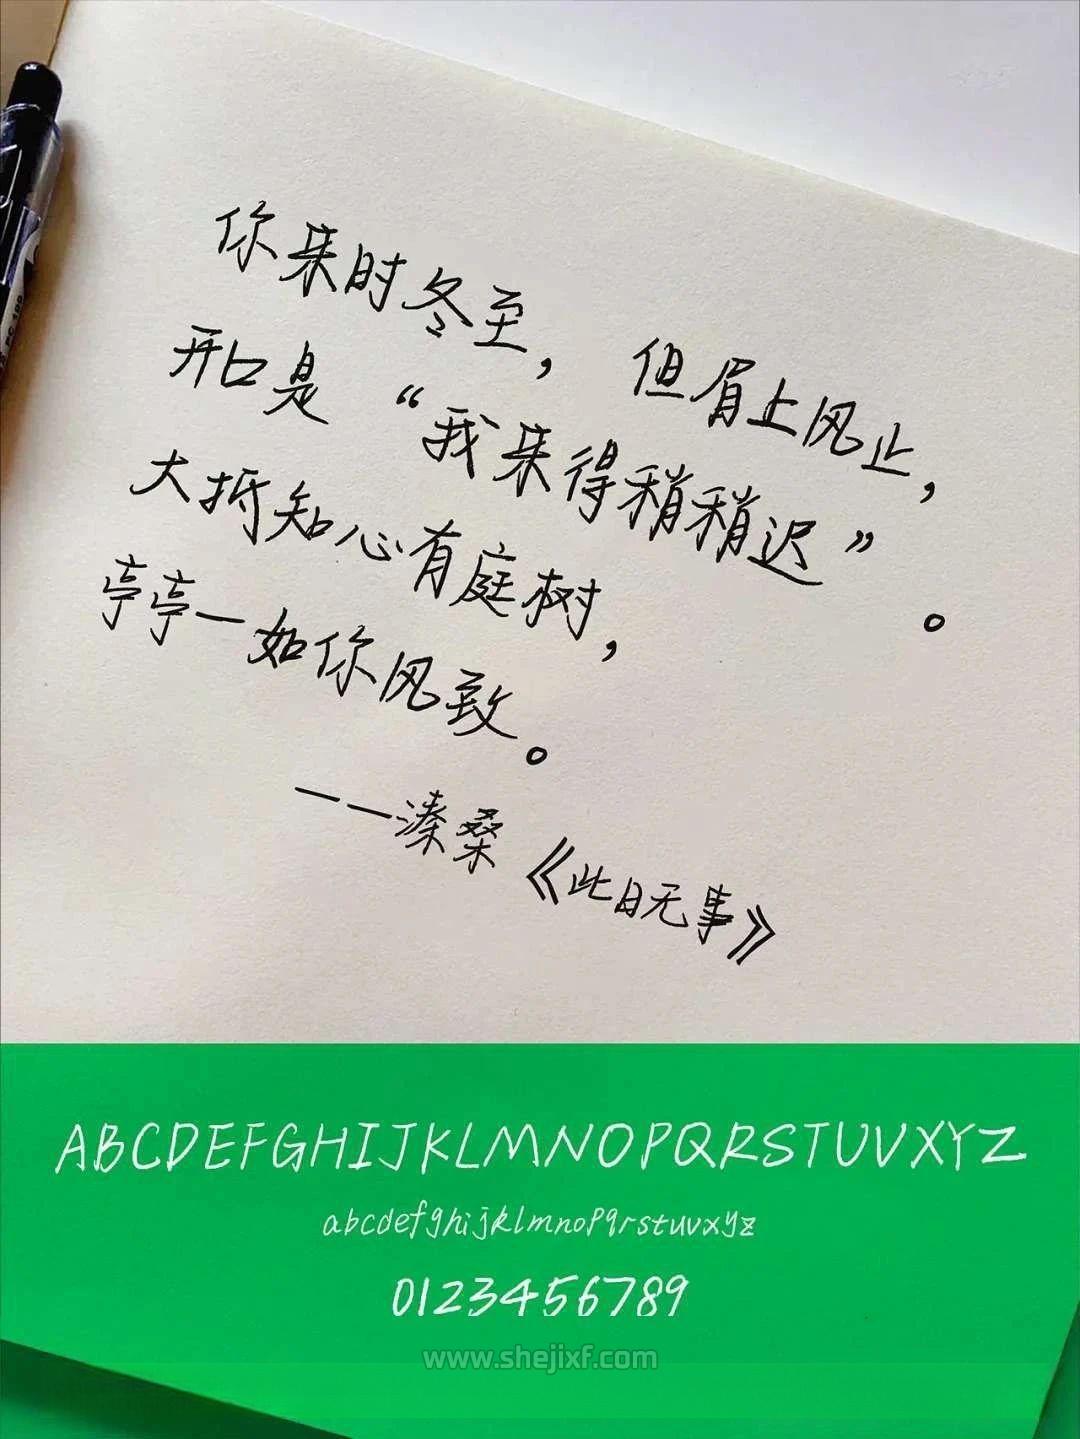 你来时冬至，但眉上风止，
开口是“我来得稍稍迟”。
大抵知心有庭树，
亭亭一如你风致。
——溱桑《此日无事》
ABCDEFGHIJKLMNOPQRSTUVXYZ
abcdefghijklmnopqrstuvxyz
0123456789
www.shejixf.com